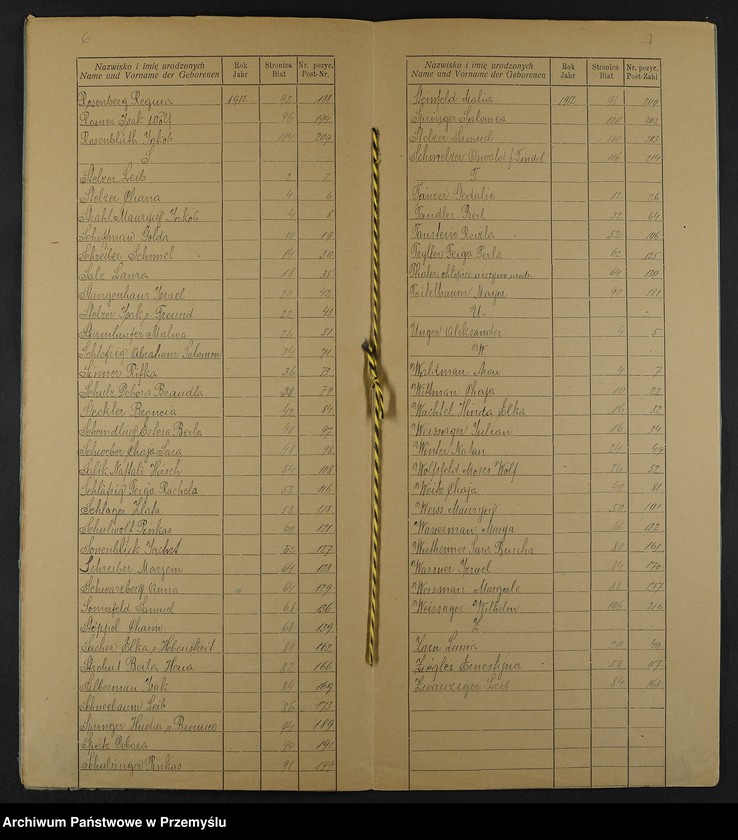 6
Nazwisko i imię urodzonych Rok Stronica Nr. pozyc.
Name und Vorname der Geborenen Jahr Blat Post-Nr.
Rosenberg Regina 1912 93 188
Rosner Izak 96 194
Rosenblüth Jakób 104 209
S
Stelzer Leib 2 2
Stelzer Chana 4 6
Strahl Maurycy Jakób 4 8
Schiffman Golda 10 19
Schreiber Schmiel 14 30
Salz Laura 18 35
Stangenhaus Izrael 20 42
Stelzer Izak v. Freund 22 43
Sturmlaufer Malwa 26 51
Schlafrig Abraham Salomon 34 71
Sinner Rifka 36 73
Schulz Debora Braindla 38 79
Stechler Broncia 42 84
Scheindling Estera Beila 48 97
Schweber Chaja Sara 48 98
Salik Naftali Hirsch 54 108
Schläfrig Feiga Rachela 58 116
Schlager Zlata 58 118
Schulwolf Pinkas 60 121
Sonenblick 62 127
Schreiber Marjem 64 128
Schwarzberg Anna 64 129
Somerfeld Samuel 68 136
Stöppel Chaim 68 139
Sacher Elka v. Hebenstreit 80 162
Beila Hena 82 166
Silberman Izak 84 169
Schneebaum Leib 86 173
Springer Hudia v. 94 189
Debora 94 191
Pinkas 98 199
7
Nazwisko i imię urodzonych Rok Stronica Nr. pozyc.
Name und Vorname der Geborenen Jahr Blat Post-Zahl
Steinfeld Malia 1912 98 200
Springer Salomea 100 202
Stelzer Samuel 100 203
Schmelzer Oswald / Findel 106 214
T
Tänzer Gedalie 12 26
Tandler Berl 32 64
Taustein Reizla 52 106
Teyller Feiga Perla 62 125
Thaler chłopiec nieżywo urodz. 64 130
Teitelbaum Mayer 90 181
U.
Unger Aleksander 4 5
W
Waldman 4 7
Wittman Chaja 10 22
Wachtel Hinda Elka 16 32
Weissager Julian 16 34
Winter Natan 24 49
Wolfsfeld Moses Wolf 26 52
Weitz Chaja 40 81
Weiss Maurycy 52 101
Wasserman Marya 66 132
Wertheimer Sara Brucha 80 161
Wassner Izrael 84 170
Weissman 88 177
Weissager Wilhelm 106 216
Z
Zorn Lunia 20 40
Ziegler Ernestyna 58 117
Leib 84 168
Archiwum Państwowe w Przemyślu